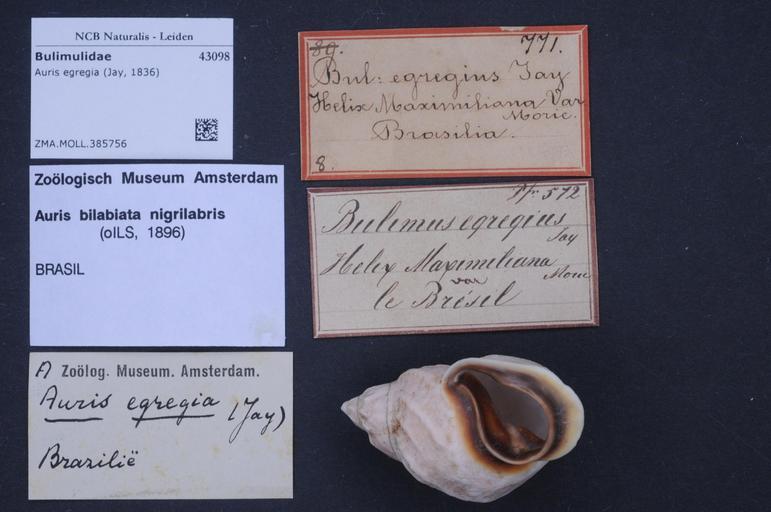 NCB Naturalis - Leiden
Bulimulidae 43098
Auris egregia (Jay, 1836)
ZMA.MOLL.385756
Zoölogisch Museum Amsterdam
Auris bilabiata nigrilabris
(oILS, 1896)
BRASIL
A Zoölog. Museum. Amsterdam.
Auris egregia (Jay)
Brazilië
89. 771.
Bul: egregius Jay
Helix Maximiliana Var
Moric.
Brasilia.
8.
Pfr 572
Bulimus egregius
Jay
Helix Maximiliana
Moric
var
le Brésil